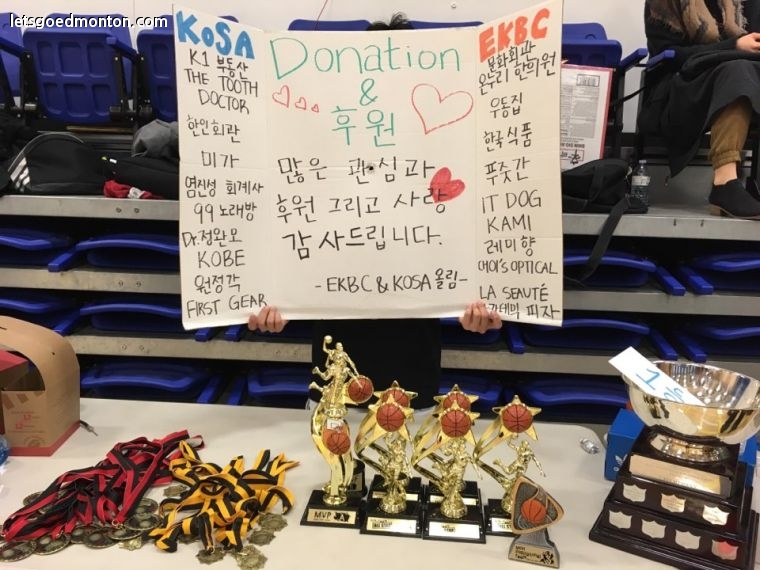 letsgoedmonton.com
KOSA
K1 부동산
THE TOOTH
DOCTOR
한인회관
미가
염진성 회계사
99 노래방
Dr.정완모
KOBE
원정각
FIRST GEAR
Donation
&
후원
많은 관심과
후원 그리고 사랑
감사드립니다.
-EKBC & KOSA 올림-
EKBC
문화회관
온누리 한의원
우동집
한국식품
푸줏간
IT DOG
KAMI
레미향
CHOI'S OPTICAL
LA SEAUTÉ
피자
MVP